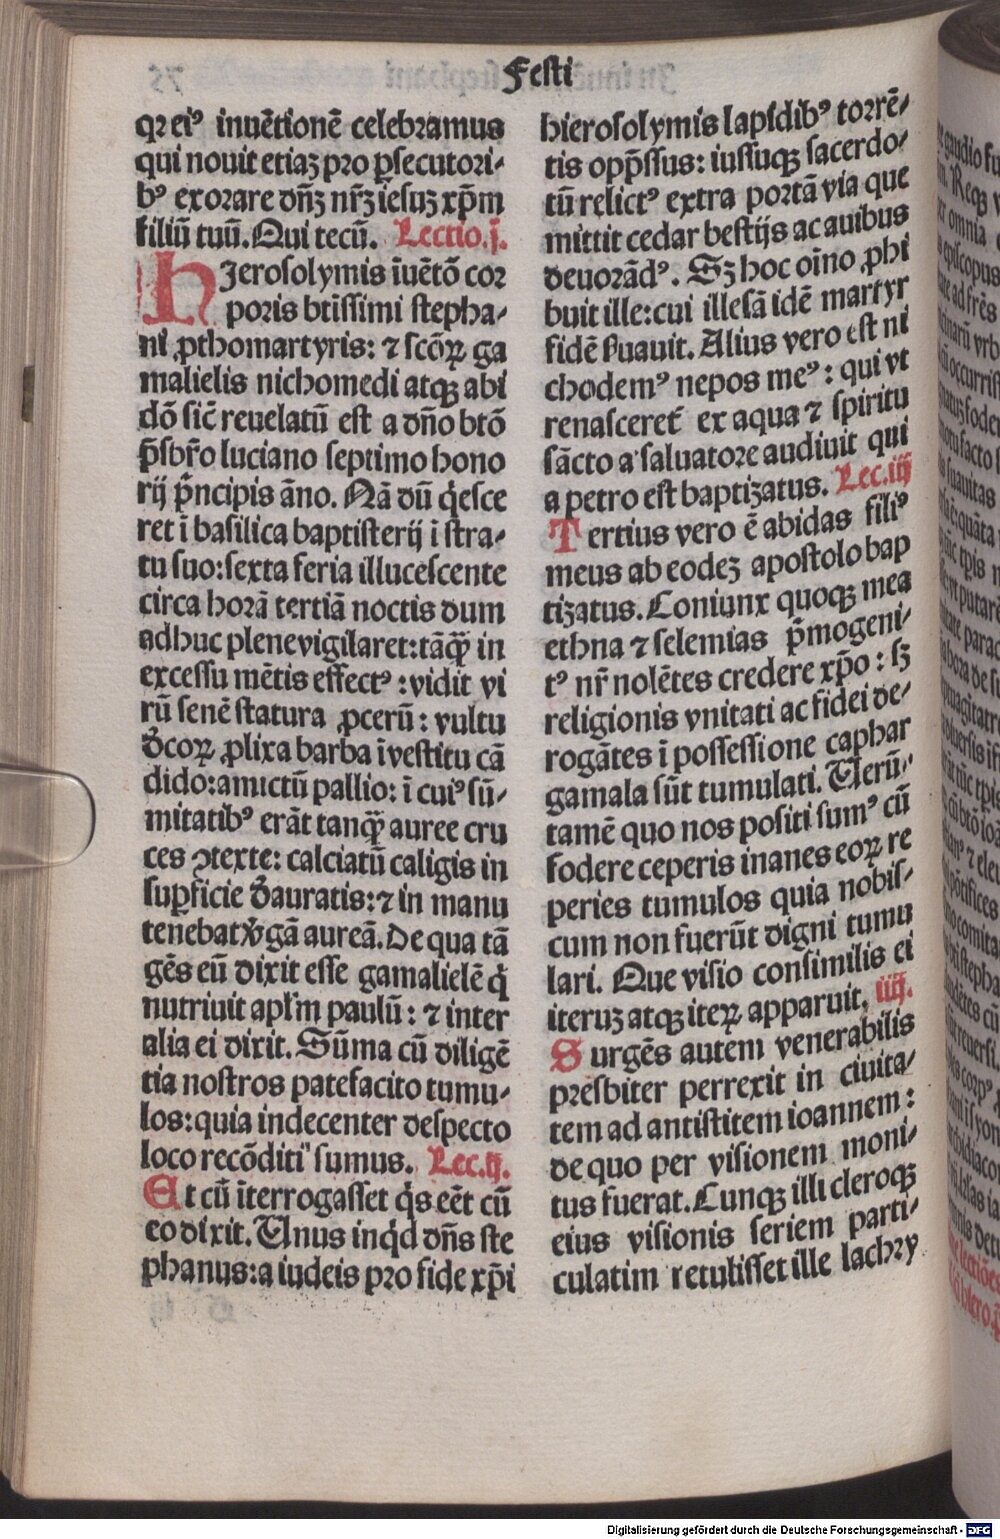 Festi
qꝛ eiꝰ inuētionē celebramus
qui nouit etiaꝫ pro ꝑsecutori-
bꝰ exorare dn̄ꝫ nr̄ꝫ iesuꝫ xp̄m
filiū tuū. Qui tecū. Lectio .j.
HJerosolymis īuētō cor
poris btissimi stepha-
ni ꝓthomartyris: ⁊ scōꝝ ga
malielis nichomedi atqꝫ abi
dō sic̄ reuelatū est a dn̄o btō
p̄sbr̄o luciano septimo hono
rij p̄ncipis āno. Nā dū q̇esce
ret ī basilica baptisterij ī stra-
tu suo: sexta feria illucescente
circa horā tertiā noctis dum
adhuc plene vigilaret: tāqꝫ̄ in
excessu mētis effectꝰ: vidit vi
rū senē statura ꝓcerū: vultu
d̄coꝝ ꝓlixa barba īvestitu cā
dido: amictū pallio: ī cuiꝰ sū-
mitatibꝰ erāt tanqꝫ̄ auree cru
ces ꝯtexte: calciatū caligis in
suꝑficie d̄auratis: ⁊ in manu
tenebat v̄gā aureā. De qua tā
gēs eū dixit esse gamalielē q̇
nutriuit apl̄m paulū: ⁊ inter
alia ei dixit. Sūma cū diligē
tia nostros patefacito tumu-
los: quia indecenter despecto
loco recōditi sumus. Lec. ij.
Et cū īterrogasset q̇s eēt cū
eo dixit. Unus inq̇d dn̄s ste
phanus: a iudeis pro fide xp̄i
hierosolymis lapidibꝰ torrē-
tis opp̄ssus: iussuqꝫ sacerdo-
tū relictꝰ extra portā via que
mittit cedar bestijs ac auibus
deuorādꝰ. Sꝫ hoc oīno ꝓhi
buit ille: cui illesā idē martyr
fidē ẞuauit. Alius vero est ni
chodemꝰ nepos meꝰ: qui vt
renasceret̄ ex aqua ⁊ spiritu
sācto a saluatore audiuit qui
a petro est baptizatus. Lec. iij
Tertius vero ē abidas filiꝰ
meus ab eodeꝫ apostolo bap
tizatus. Coniunx quoqꝫ mea
ethna ⁊ selemias p̄mogeni-
tꝰ nr̄ nolētes credere xp̄o: sꝫ
religionis vnitati ac fidei de-
rogātes ī possessione caphar
gamala sūt tumulati. Uerū-
tamē quo nos positi sumꝰ cū
fodere ceperis inanes eoꝝ re
peries tumulos quia nobis-
cum non fuerūt digni tumu
lari. Que visio consimilis ei
iteruꝫ atqꝫ iteꝝ apparuit. iiij.
Surgēs autem venerabilis
presbiter perrexit in ciuita-
tem ad antistitem ioannem:
de quo per visionem moni-
tus fuerat. Cunqꝫ illi cleroqꝫ
eius visionis seriem parti-
culatim retulisset ille lachry
Digitalisierung gefördert durch die Deutsche Forschungsgemeinschaft - DFG